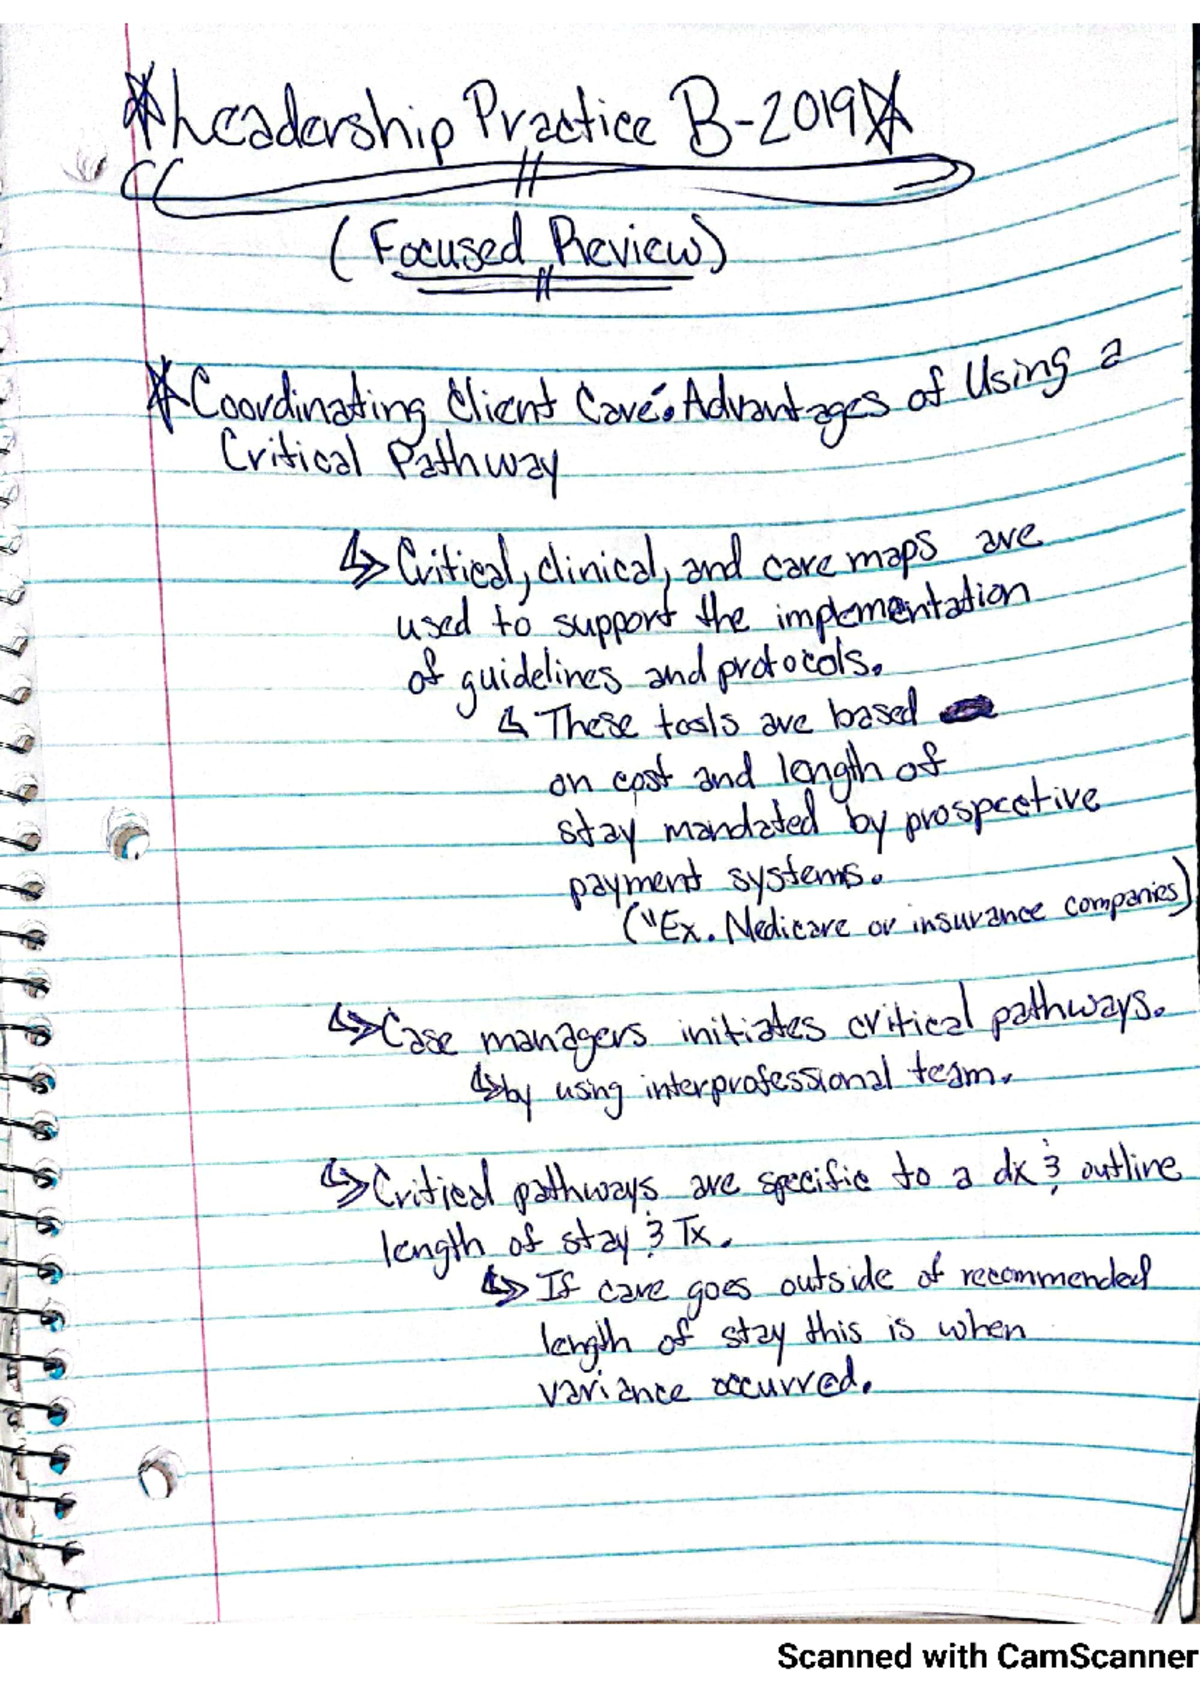 Leadership Practice B-2019
(Focused Review)
Coordinating Client Care: Advantages of Using a
Critical Pathway
Critical, clinical, and care maps are
used to support the implementation
of guidelines and protocols.
These tools are based
on cost and length of
stay mandated by prospective
payment systems.
("Ex. Medicare or insurance companies)
Case managers initiates critical pathways.
by using interprofessional team.
Critical pathways are specific to a dx & outline
length of stay & Tx.
If care goes outside of recommended
length of stay this is when
variance occurred.
Scanned with CamScanner